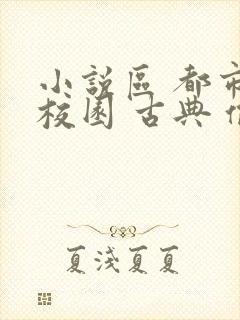 小說區 都市
校園 古典
夏淺夏夏